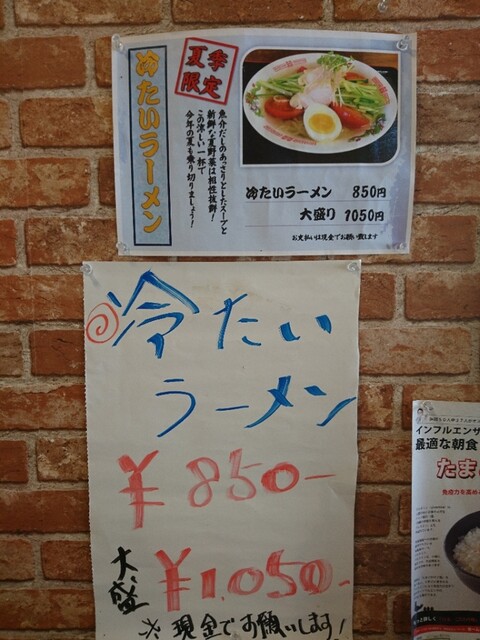 冷たいラーメン
夏季
限定
魚介だしのあっさりとしたスープと
新鮮な夏野菜は相性抜群!
この涼しい一杯で
今年の夏も乗り切りましょう!
冷たいラーメン 850円
大盛り 1050円
お支払いは現金でお願い致します
冷たい
ラーメン
¥850-
大盛 ¥1,050-
※現金でお願いします!
インフルエンザ
最適な朝食
たま
免疫力を高め